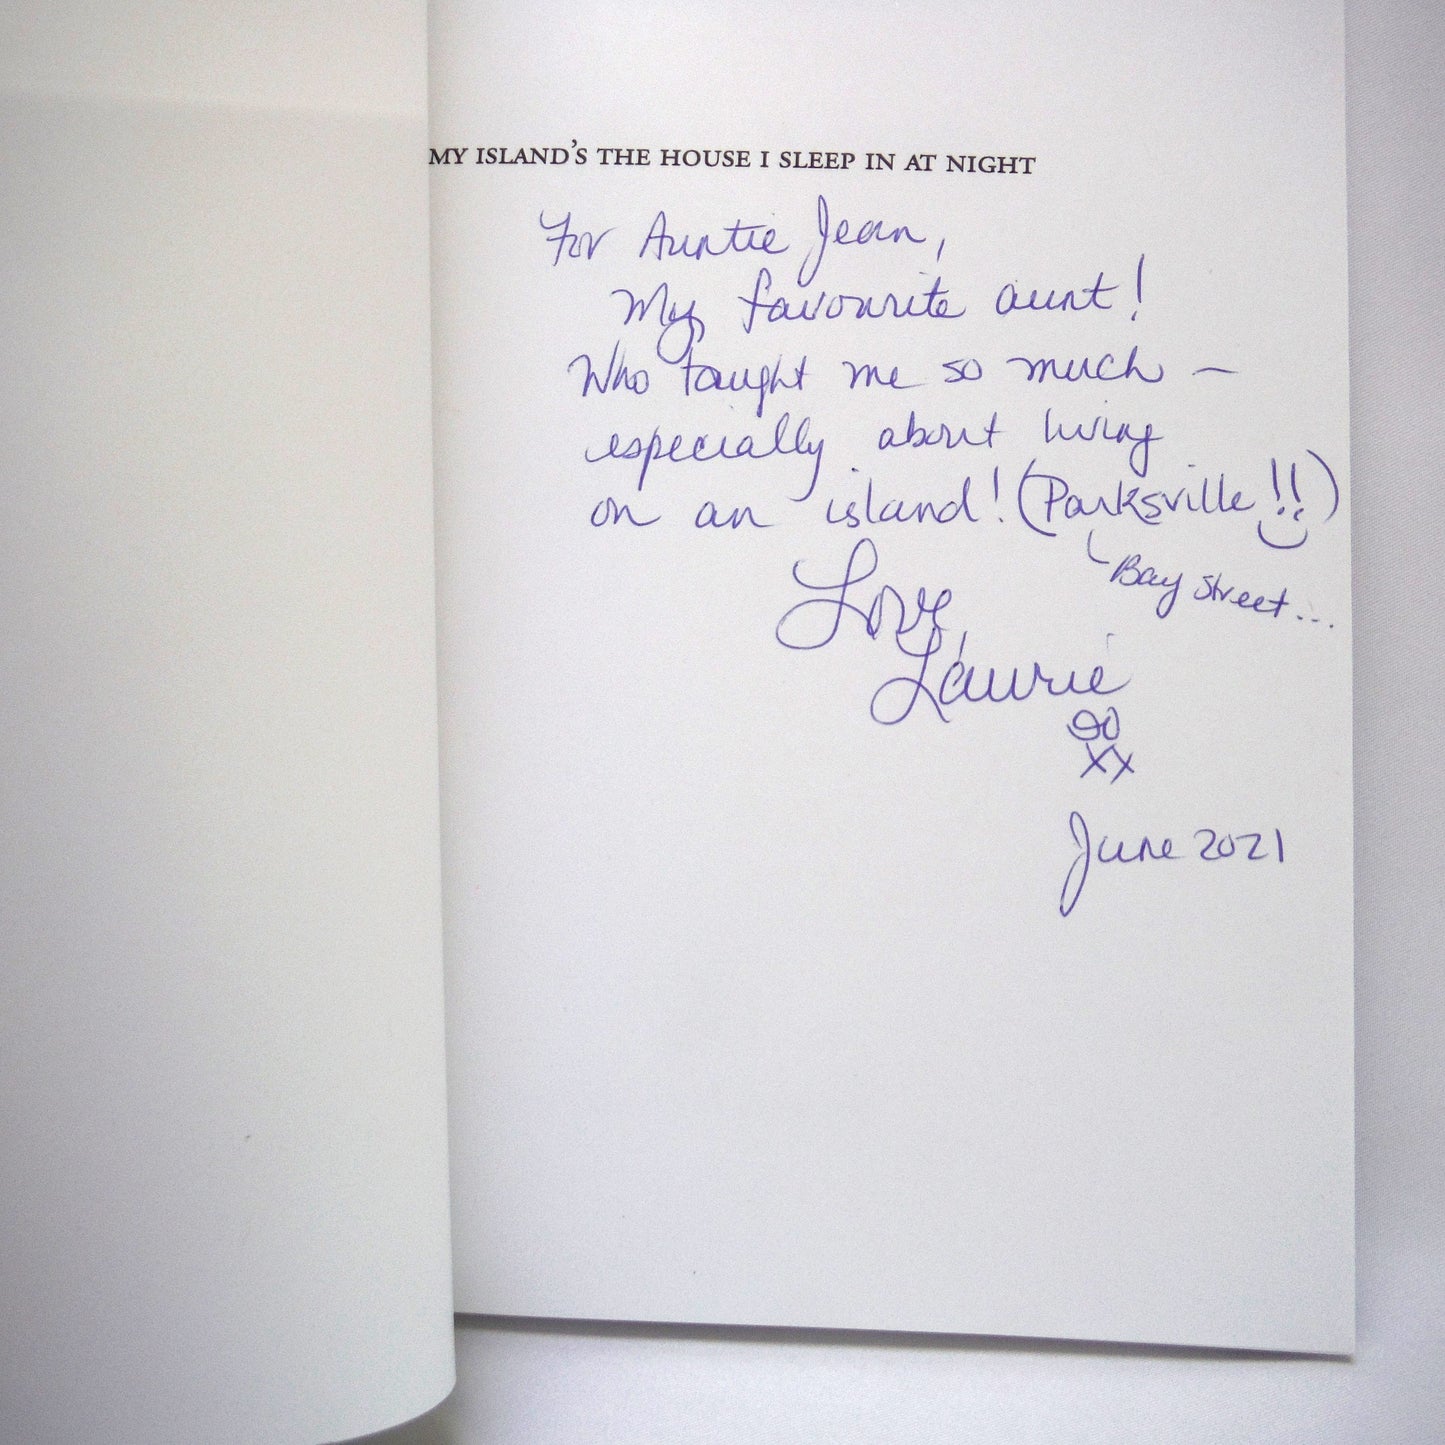 MY ISLAND'S THE HOUSE I SLEEP IN AT NIGHT
For Auntie Jean,
My favourite aunt!
Who taught me so much –
especially about living
on an island! (Parksville!!)
Bay Street...
Love,
Laurie
OO
XX
June 2021